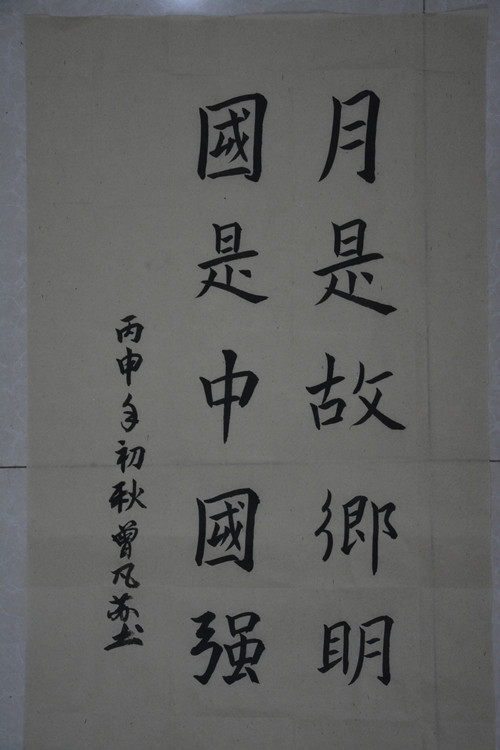 月是故鄉明
國是中國强
丙申年初秋曾凡苏书